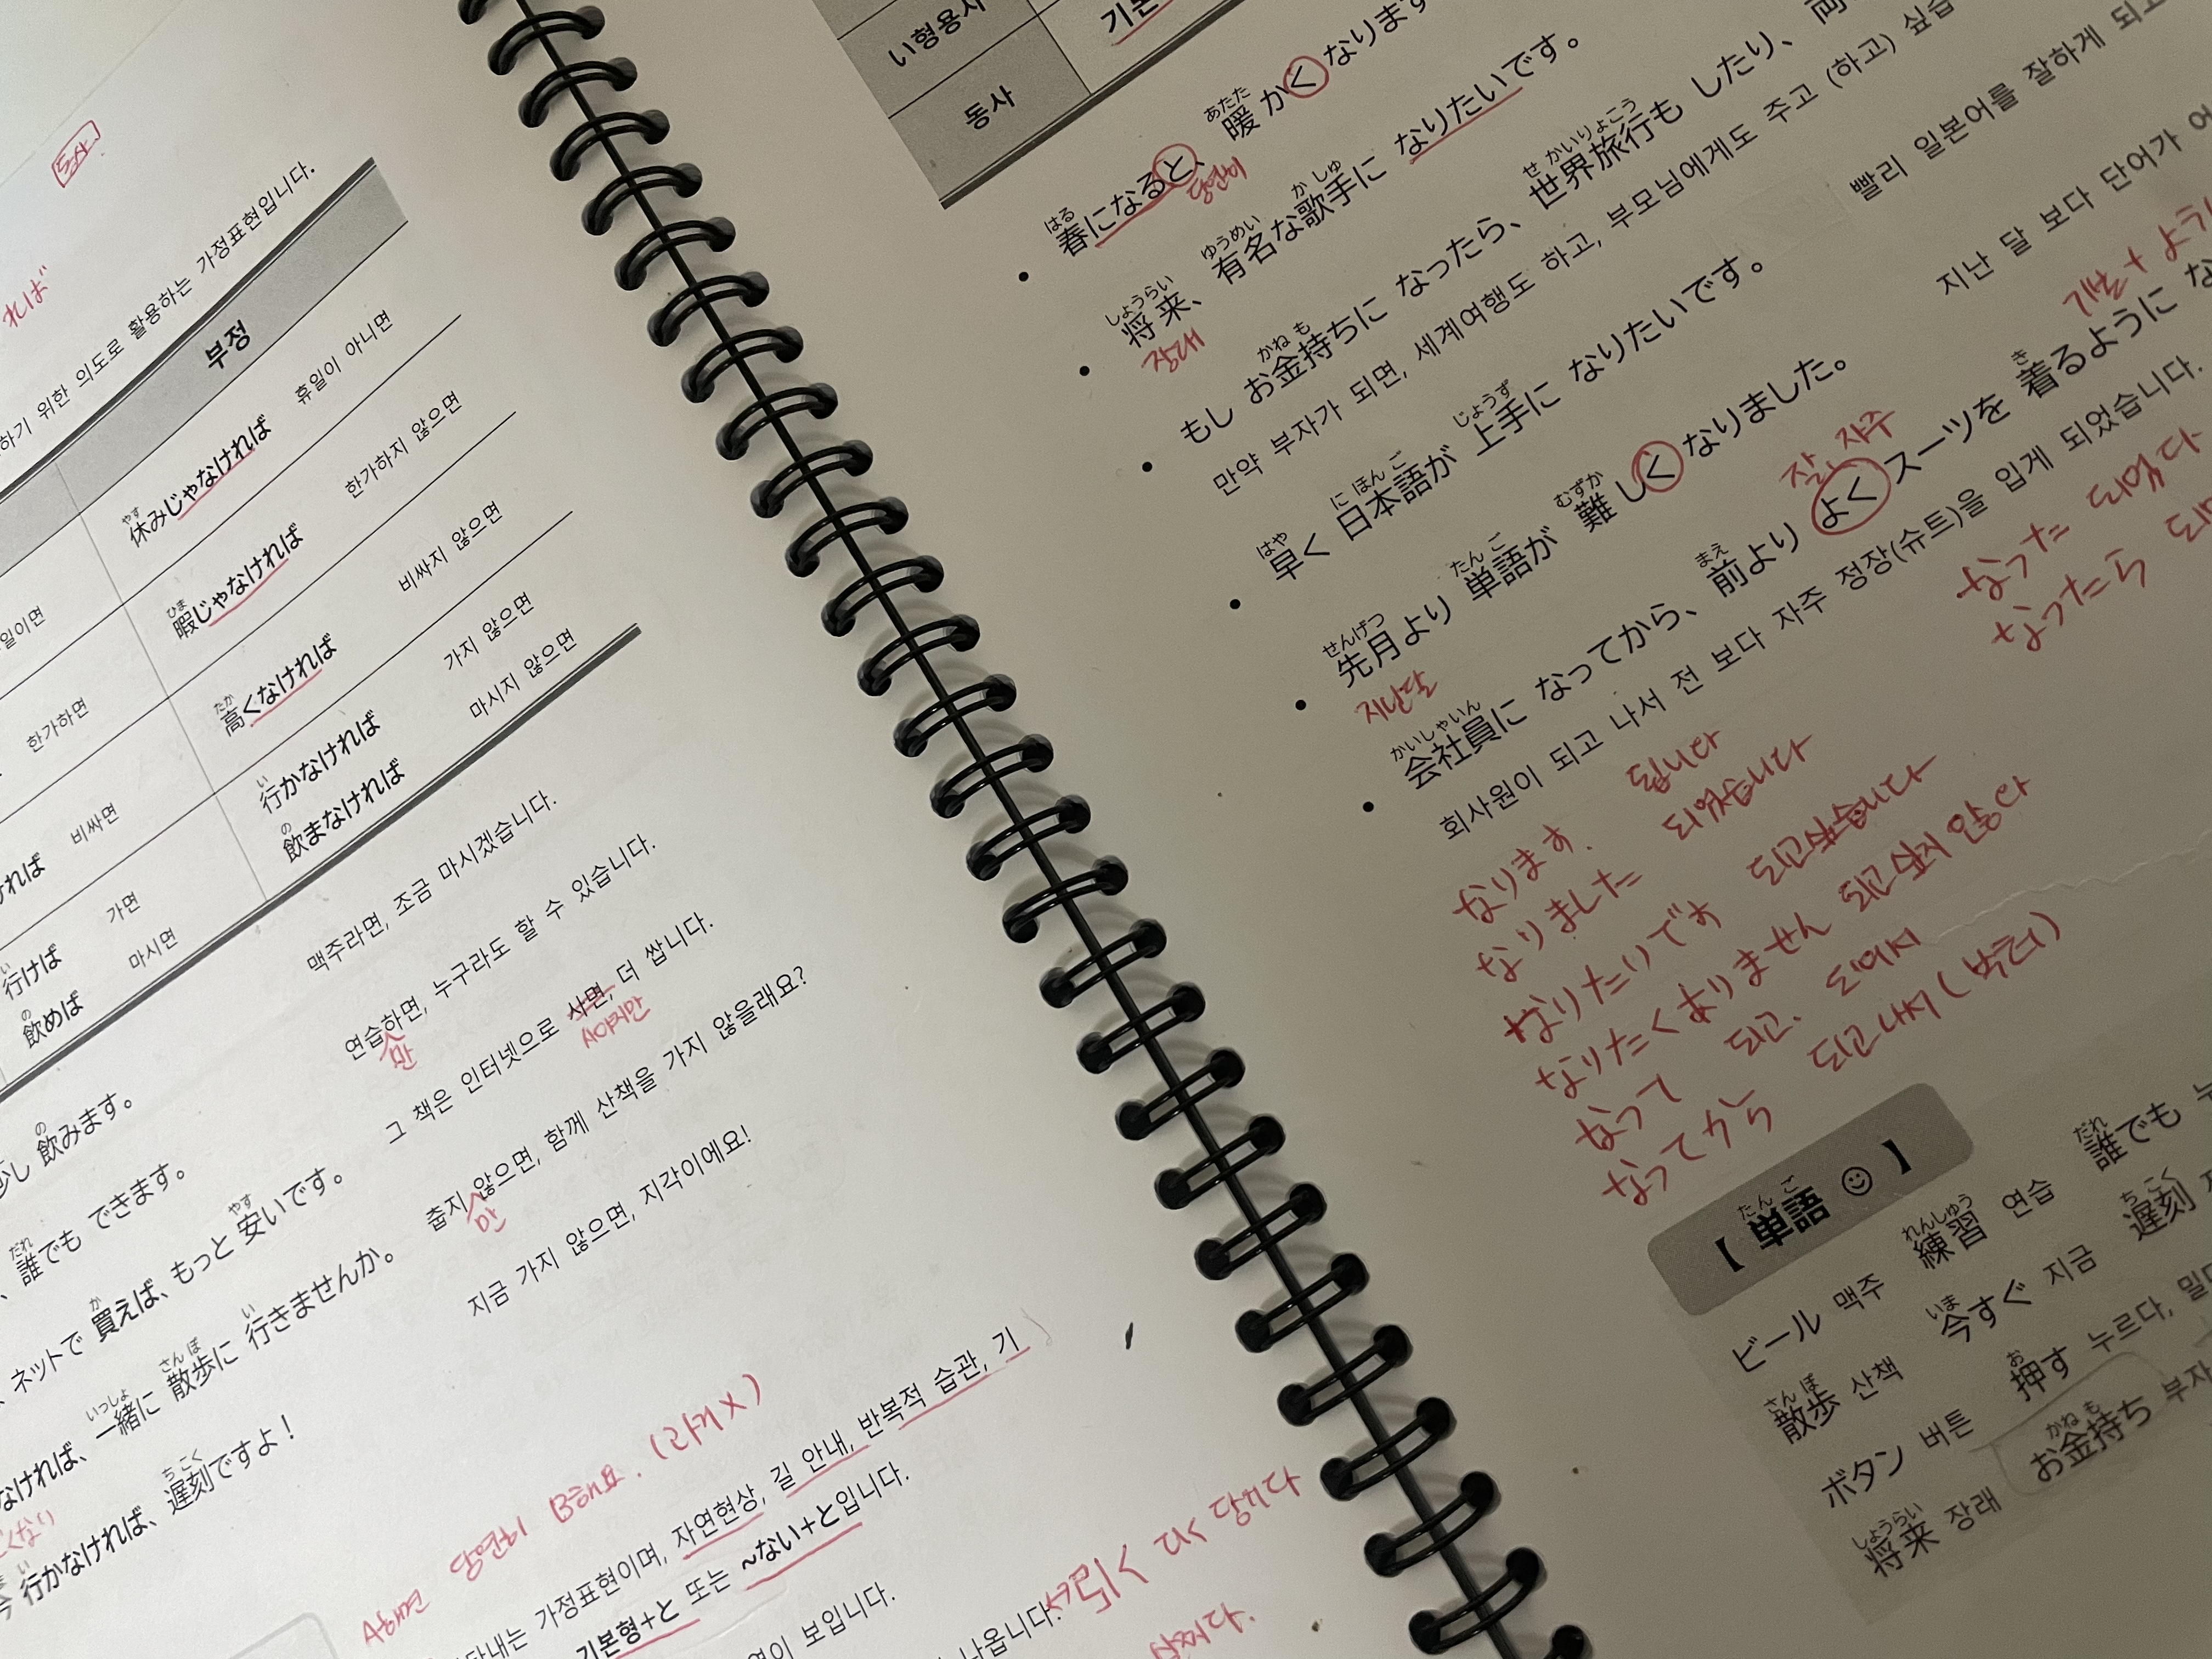 동사
れば
하기 위한 의도로 활용하는 가정표현입니다.
부정
やす
休みじゃなければ 휴일이 아니면
일이면
ひま
暇じゃなければ 한가하지 않으면
한가하면
たか
高くなければ 비싸지 않으면
비싸면
い
行かなければ 가지 않으면
の
飲まなければ 마시지 않으면
ければ
い
行けば 가면
の
飲めば 마시면
の
少し 飲みます。 맥주라면, 조금 마시겠습니다.
だれ
誰でも できます。 연습하면, 누구라도 할 수 있습니다.
만
か やす
ネットで 買えば、もっと 安いです。 그 책은 인터넷으로 사면, 더 쌉니다.
사야지만
いっしょ さん ぽ い
なければ、一緒に 散歩に 行きませんか。 춥지 않으면, 함께 산책을 가지 않을래요?
만
くない
いま い ち こく
今 行かなければ、遅刻ですよ！ 지금 가지 않으면, 지각이에요!
A하면 당연히 B해요. (과거X)
타내는 가정표현이며, 자연현상, 길 안내, 반복적 습관, 기
기본형+と 또는 ~ない+と입니다.
이 보입니다.
나옵니다.
引く ひく 당기다
い형용사
동사 기본
はる あたた
春になると、暖かく なります
당연히
しょうらい ゆうめい か しゅ
• 将来、有名な歌手に なりたいです。
장래
かね も せ かいりょこう
• もし お金持ちに なったら、世界旅行も したり、両
만약 부자가 되면, 세계여행도 하고, 부모님에게도 주고 (하고) 싶습
はや に ほん ご じょうず
• 早く 日本語が 上手に なりたいです。 빨리 일본어를 잘하게 되고
せんげつ たん ご むずか
• 先月より 単語が 難しく なりました。 지난 달 보다 단어가 어
지난달
잘, 자주
기본 + ように
かいしゃいん まえ き
• 会社員に なってから、前より よく スーツを 着るように な
회사원이 되고 나서 전 보다 자주 정장(슈트)을 입게 되었습니다.
なった 되었다
なったら 되
なります. 됩니다
なりました 되었습니다
なりたいです 되고싶습니다
なりたくありません 되고 싶지 않다
なって 되고. 되어지
なってから 되고 나서
たん ご
【 単語 ☺ 】
れんしゅう だれ
ビール 맥주 練習 연습 誰でも 누
さん ぽ いま ち こく
散歩 산책 今すぐ 지금 遅刻 지
お
ボタン 버튼 押す 누르다, 밀다
しょうらい かね も
将来 장래 お金持ち 부자